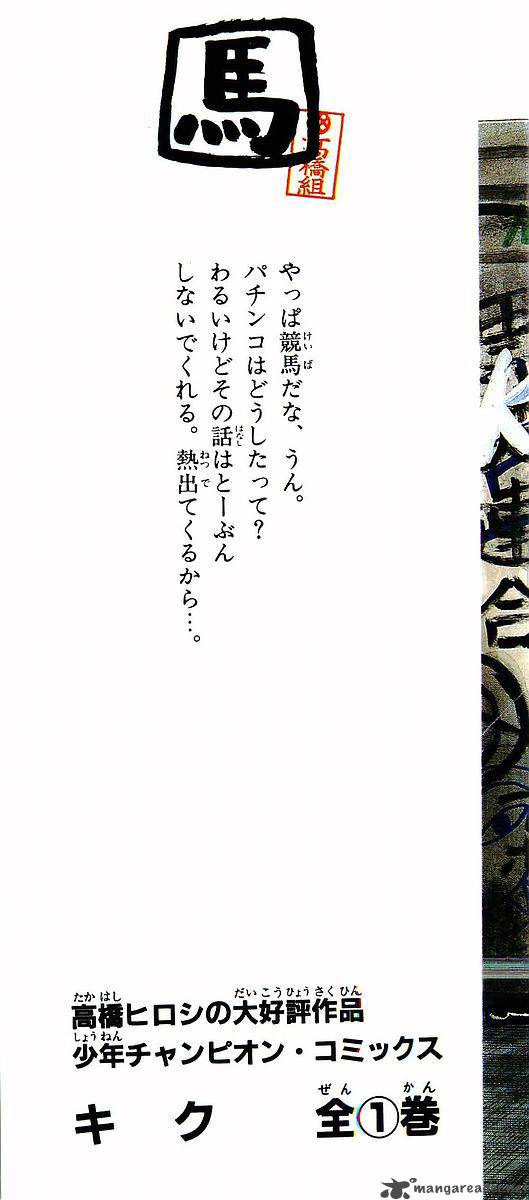 馬
高橋組
やっぱ競馬だな、うん。
パチンコはどうしたって?
わるいけどその話はとーぶん
しないでくれる。熱出てくるから…。
高橋ヒロシの大好評作品
少年チャンピオン・コミックス
キク 全①巻
mangarea